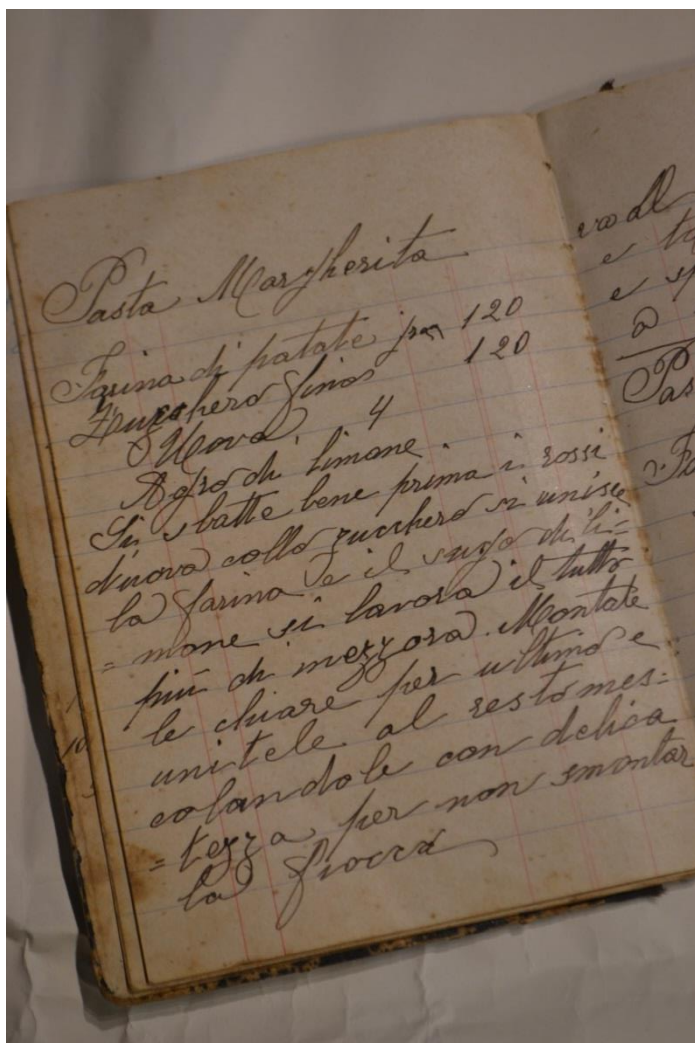 Pasta Margherita
Farina di patate gra 120
Zucchero fino 120
Uova 4
Agro di limone
Si sbatte bene prima i rossi
d'uova collo zucchero si unisce
la farina e il sugo di li=
=mone si lavora il tutto
più di mezzora. Montate
le chiare per ultimo e
unitele al resto mes=
colandole con delica
=tezza per non smontar
la fiocca
e
e
a